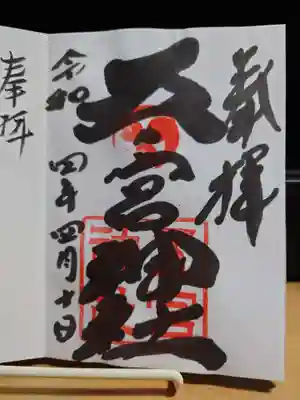 拝
五宮神社
令和四年四月十日
奉拝